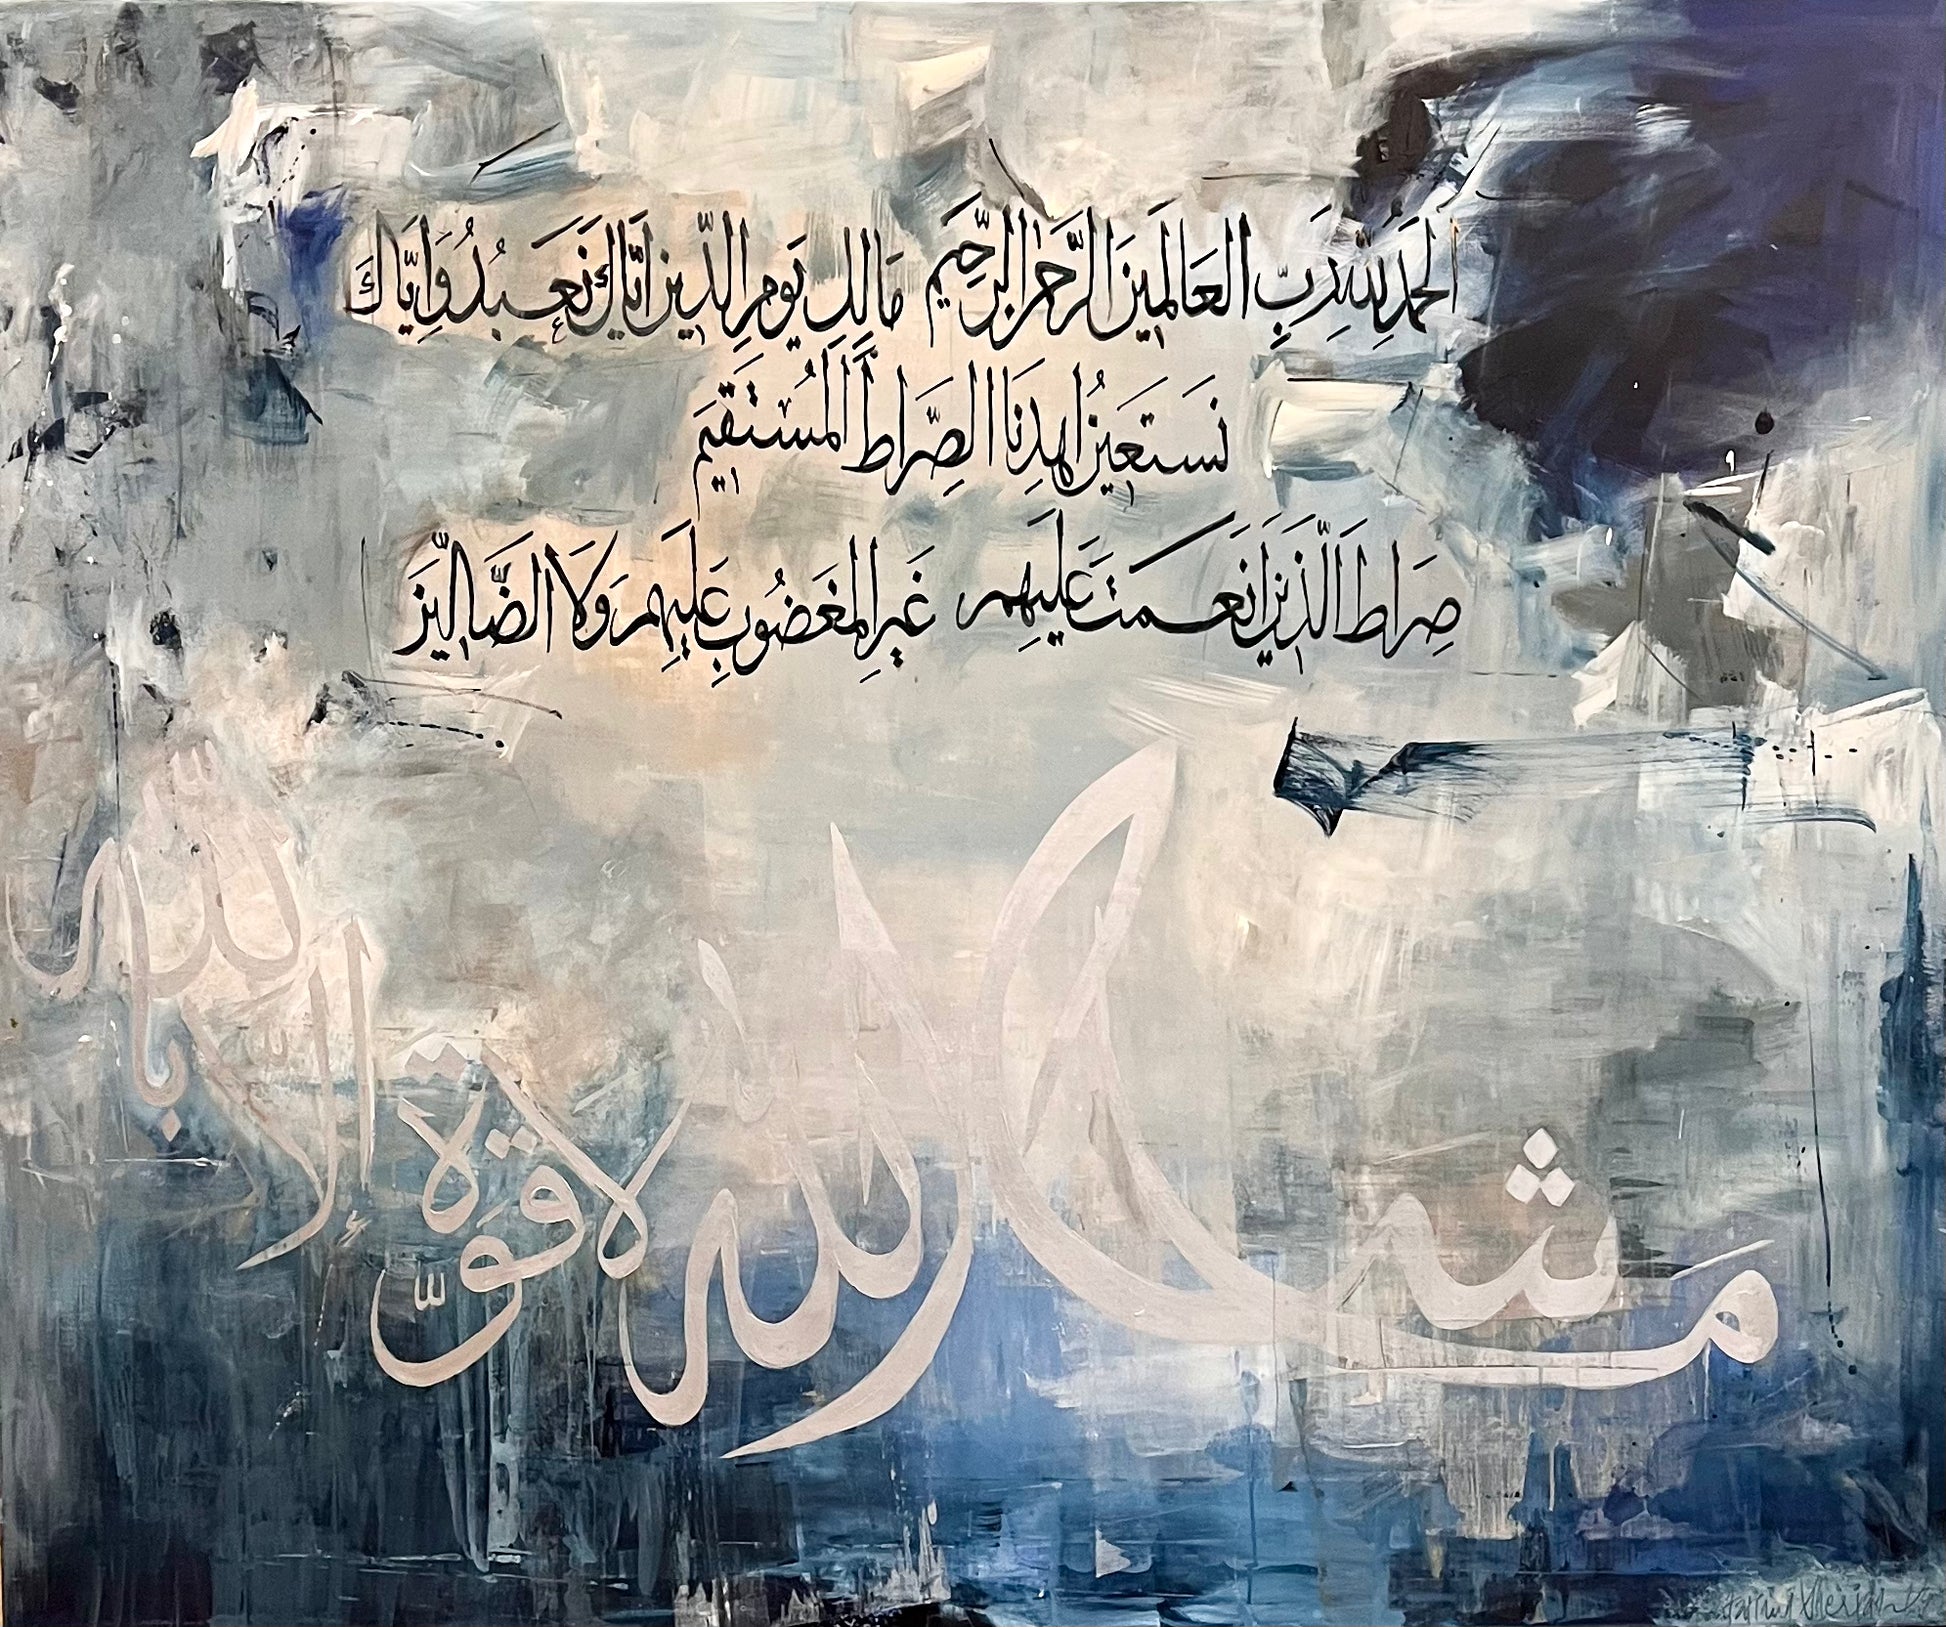 الحَمدُ لِلّهِ رَبِّ العَالَمِين الرَّحمٰن الرَّحِيم مَالِكِ يَومِ الدِّين إيَّاكَ نَعبُدُ وَإِيَّاكَ
نَستَعِينُ اهدِنَا الصِّرَاطَ المُستَقِيمَ
صِرَاطَ الَّذِينَ أنعَمتَ عَلَيهِم غَيرِ المَغضُوبِ عَلَيهِم وَلَا الضَّالِّين
مَا شَاء الله لا قوَّة إلّا بالله